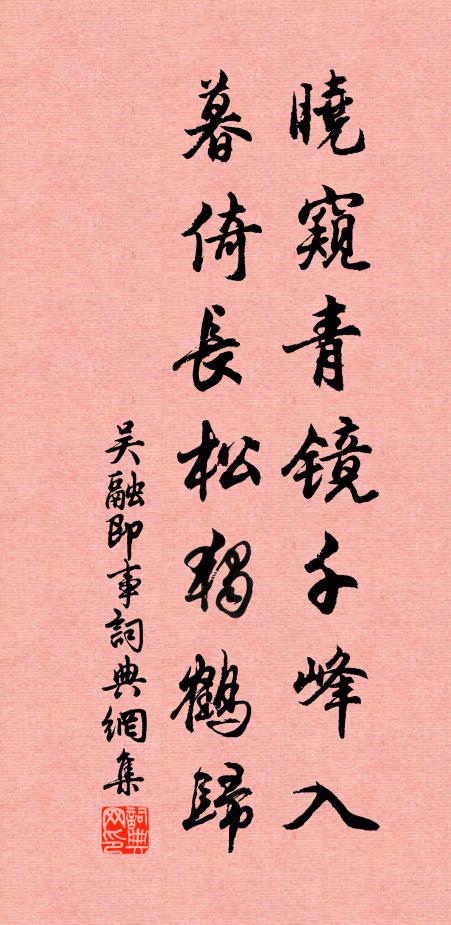 曉窺青鏡千峰入
暮倚長松獨鶴歸
吴融即事詞典網集
詞典网印